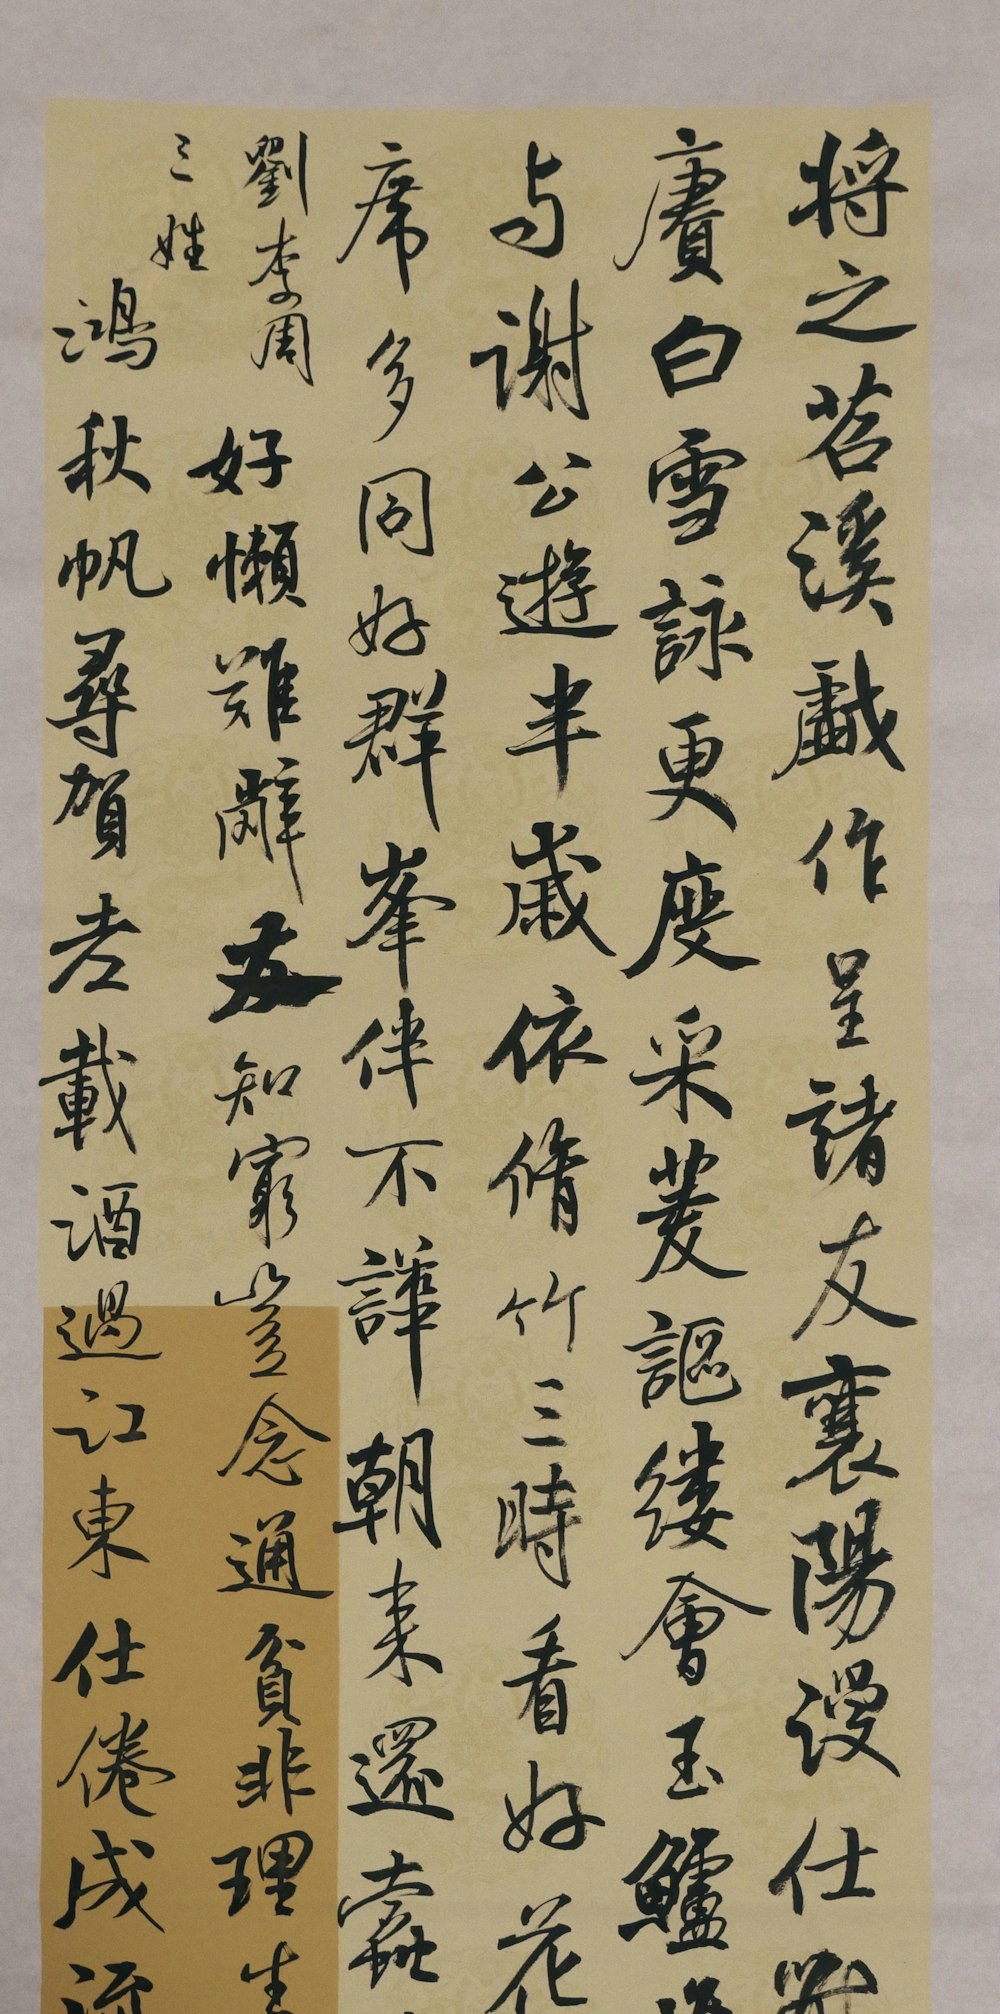 将之苕溪戯作呈諸友襄陽漫仕
賡白雪詠更度采菱謳縷會玉鱸
与謝公遊半歲依脩竹三時看好花
席多同好群峯伴不譁朝来還蠹
劉李周
三姓
好懶難辭友知窮豈念通貧非理生
鴻秋帆尋賀老載酒過江東仕倦成流